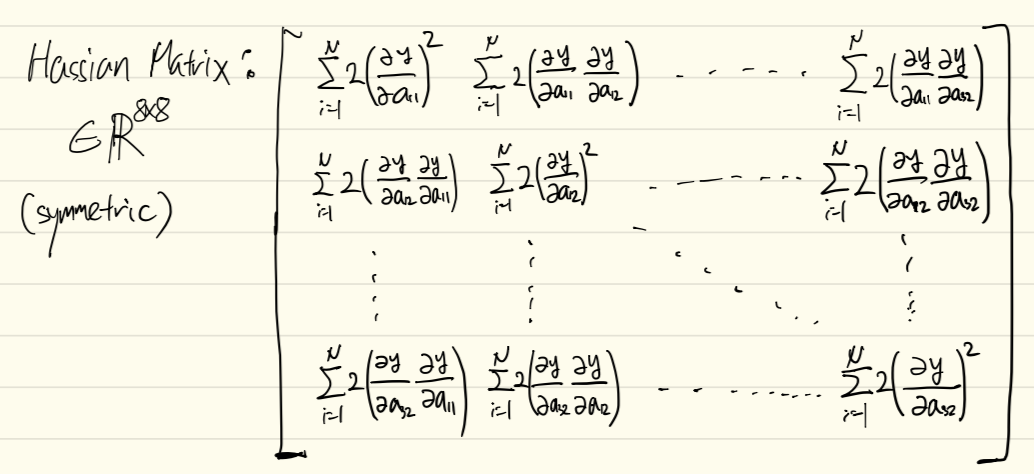 Hassian Matrix:
∈ℝ^{8×8}
(symmetric)
\sum_{i=1}^{N} 2\left(\frac{∂y}{∂a_{11}}\right)^2 \sum_{i=1}^{N} 2\left(\frac{∂y}{∂a_{11}} \frac{∂y}{∂a_{12}}\right) ⋯ \sum_{i=1}^{N} 2\left(\frac{∂y}{∂a_{11}} \frac{∂y}{∂a_{s2}}\right)
\sum_{i=1}^{N} 2\left(\frac{∂y}{∂a_{12}} \frac{∂y}{∂a_{11}}\right) \sum_{i=1}^{N} 2\left(\frac{∂y}{∂a_{12}}\right)^2 ⋯ \sum_{i=1}^{N} 2\left(\frac{∂y}{∂a_{12}} \frac{∂y}{∂a_{s2}}\right)
⋮ ⋮ ⋱ ⋮
\sum_{i=1}^{N} 2\left(\frac{∂y}{∂a_{s2}} \frac{∂y}{∂a_{11}}\right) \sum_{i=1}^{N} 2\left(\frac{∂y}{∂a_{s2}} \frac{∂y}{∂a_{12}}\right) ⋯ \sum_{i=1}^{N} 2\left(\frac{∂y}{∂a_{s2}}\right)^2